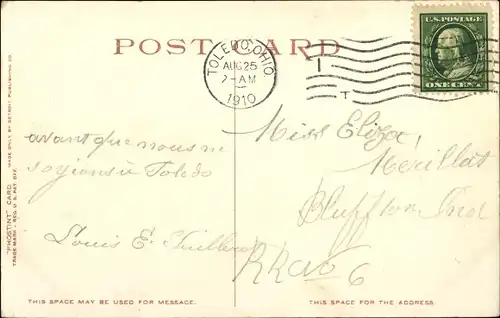 POST CARD
U.S. POSTAGE
ONE CENT
TOLEDO, OHIO
AUG 25
7-AM
1910
T
avant que nous ne
soyions à Toledo
Louis E.
Miss Eliza
Merillat
Bluffton Ind
RR no 6
THIS SPACE MAY BE USED FOR MESSAGE.
THIS SPACE IS FOR THE ADDRESS.
"PHOSTINT" CARD MADE ONLY BY DETROIT PUBLISHING CO.
TRADE MARK, REG. U.S. PAT. OFF.